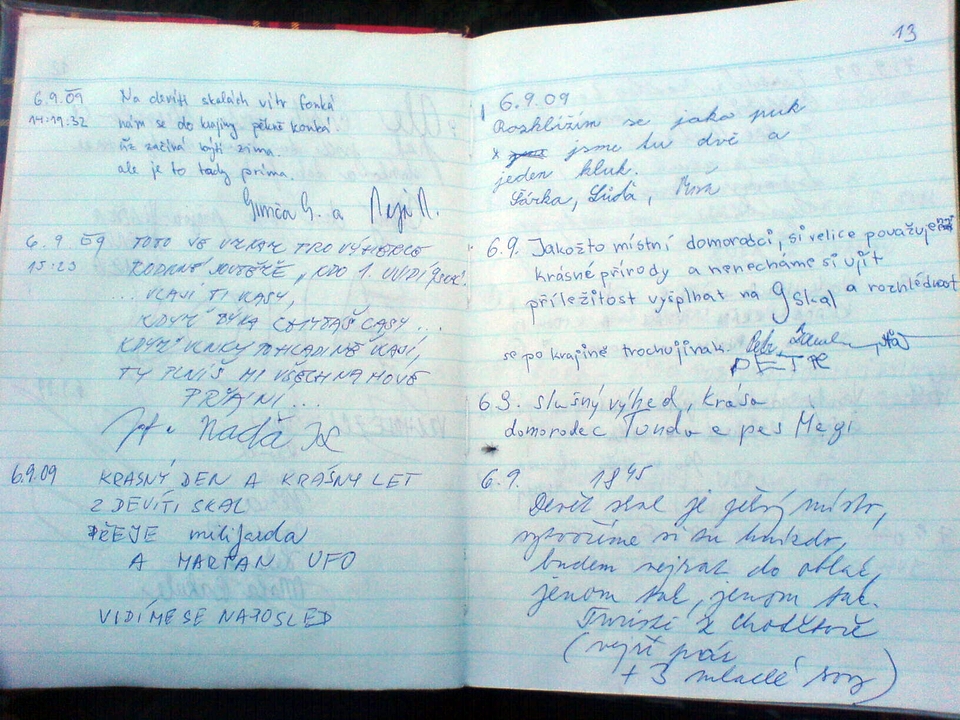 6.9.09 Na devíti skalách vítr fouká
14:19:32 nám se do krajiny pěkně kouká
už začíná býti zima.
ale je to tady prima.
Simča G. a
6.9 09 TOTO JE VZKAZ PRO VÝHERCE
15:23 RODINNÉ SOUTĚŽE, KDO 1. UVIDÍ 9SKAL
... VLASÍ TI KASY,
KDYŽ
KDYŽ VLNKY POHLADÍ
TY PLNÍŠ MI VŠECHNA NOVÉ
PŘÁNÍ...
Naďa
6.9.09 KRASNÝ DEN A KRÁSNÝ LET
Z DEVÍTI SKAL
PŘEJE milijarda
A MARŤAN UFO
VIDÍME SE NAPOSLED
13
6.9.09
Rozhlížím se jako puk
x jsme tu dvě a
jeden kluk.
Šárka, Lída,
6.9. Jakožto místní domorodci, si velice považujem
krásné přírody a nenecháme si ujít
příležitost vyšplhat na 9 skal a rozhlédnout
se po krajině trochu jinak.
PETR
6.9. slušný výhled, krása
domorodec Tonda e pes Megi
6.9. 1845
Devět skal je pěkný místo,
vytvoříme si tu hnízdo,
budem vejrat do oblak,
jenom tak, jenom tak.
Turisti z
(
+ 3 mladé sovy)